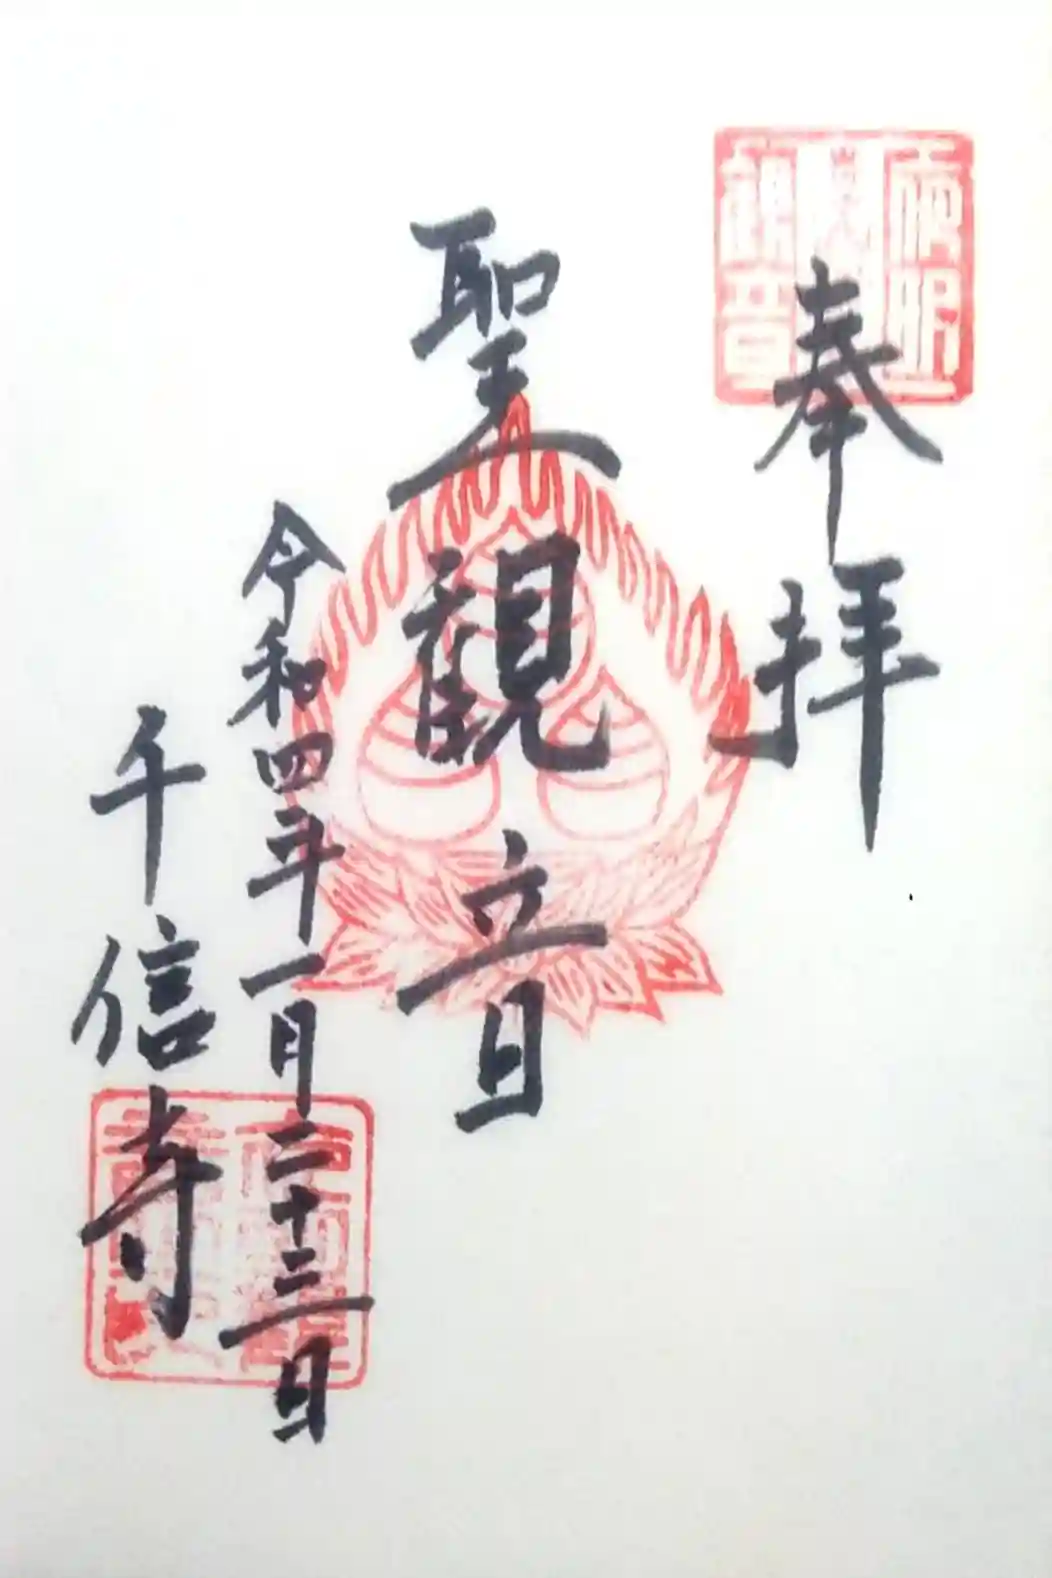 奉拝
聖観音
令和四年一月二十三日
千信寺